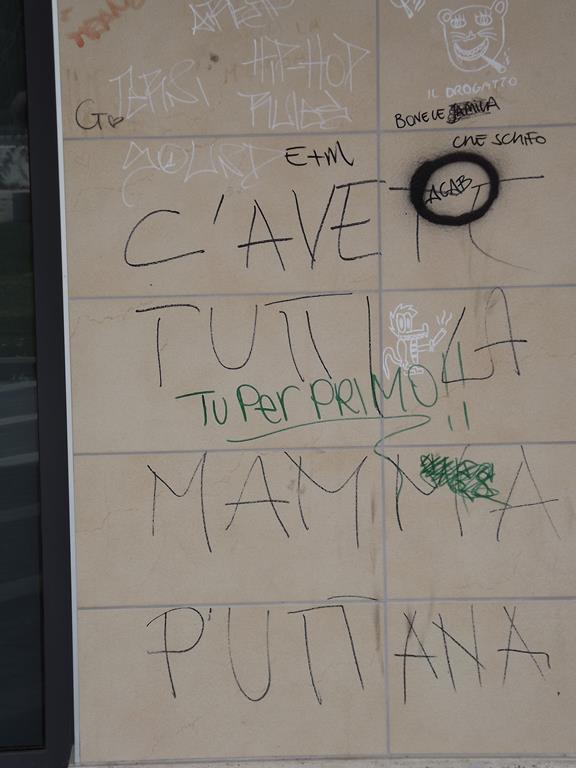 HIP-HOP
IL DROGATTO
G
BOVE LE
CHE SCHIFO
E+M
ACAB
C'AVETE
TUTTI LA
TU PER PRIMO!!
MAMMA
PUTTANA